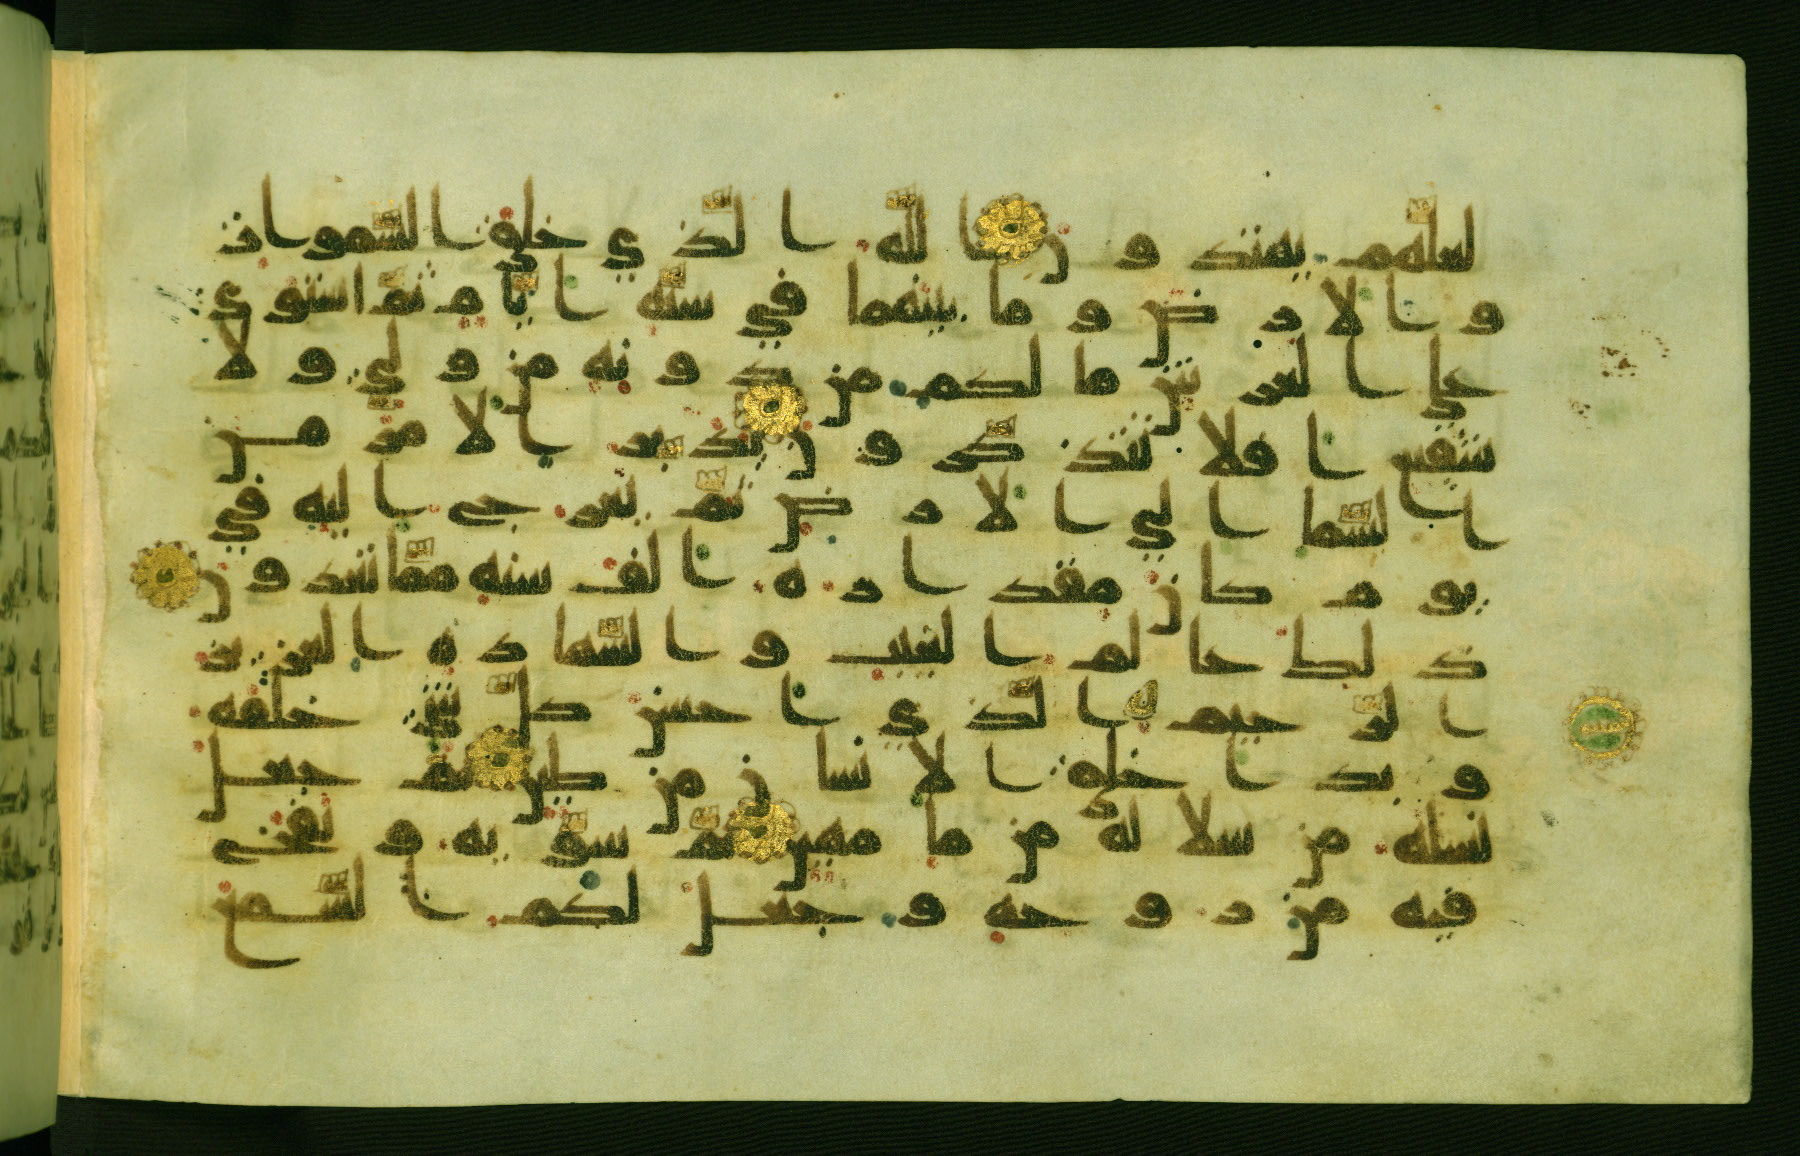 لعلهم يهتدون الله الذي خلق السموات
والارض وما بينهما في ستة ايام ثم استوى
على العرش ما لكم من دونه من ولي ولا
شفيع افلا تتذكرون يدبر الامر من
السما الى الارض ثم يعرج اليه في
يوم كان مقداره الف سنة مما تعدون
ذلك عالم الغيب والشهادة العزيز
الرحيم الذي احسن كل شي خلقه
وبدا خلق الانسان من طين ثم جعل
نسله من سلالة من ما مهين ثم سويه ونفخ
فيه من روحه وجعل لكم السمع